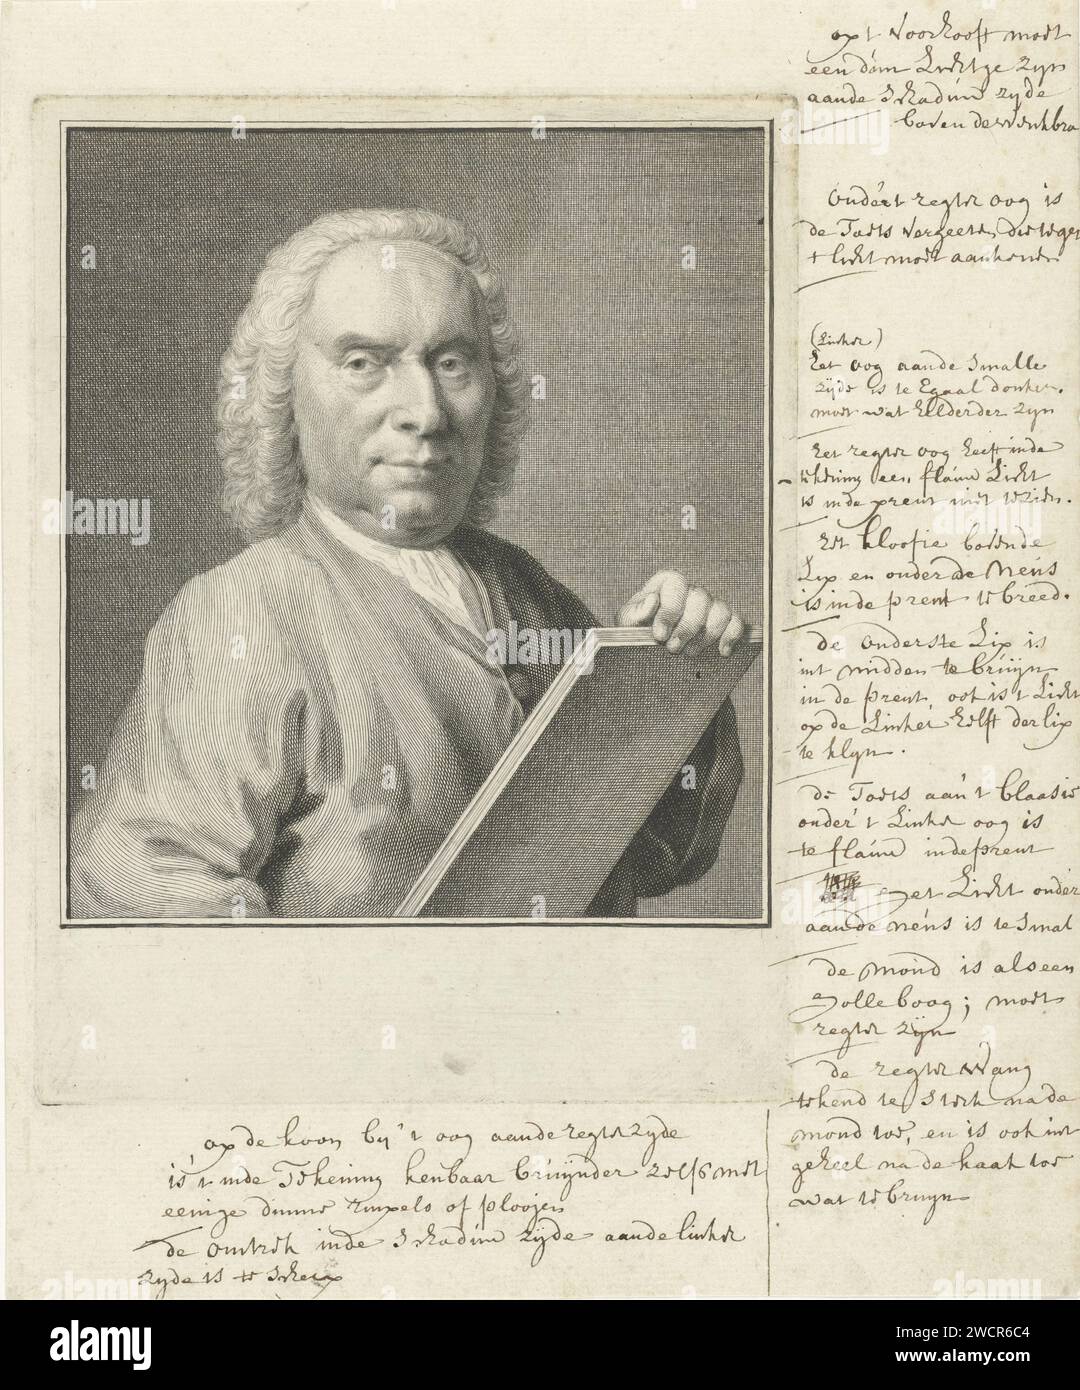 opt Voorhooft moet
een dom Lichtge zyn
aande Schaduw zyde
boven de winkbra
onder't regter oog is
de Toets vergeeten, die tegen
t licht moet aankomen
(Linker)
Het oog aande Smalle
zijde is te Egaal donker.
moet wat Hellderder zyn
Het regter oog heeft inde
tekening een flaúw Licht
is inde prent niet te zien.
Het kloofie boven de
Lip en onder de Neús
is inde prent te breed.
de onderste Lip is
int midden te bruÿn
in de prent, ook is t Licht
op de Linker helft der lip
te klyn.
de Toets aan't blaasie
onder't Linker oog is
te flaúw inde prent
Het Licht onder
aan de neús is te Smal
de Mond is als een
Elleboog; moet
regter zÿn
de regter Wang
tekend te Sterk na de
mond toe, en is ook int
geheel na de kaak toe
wat te bruyn
op de koon by't oog aande regter zyde
is't inde Tekening kenbaar bruÿnder zelfs met
eenige dunne rimpels of plooijen
de omtrek inde Schaduw zÿde aande linker
zyde is te Scherp
alamy
alamy
alamy
alamy
alamy
alamy
alamy
Image ID: 2WCR6C4
www.alamy.com